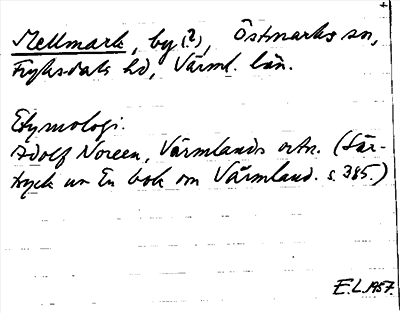 Mellmark, by (?), Östmarks sn,
Fryksdals hd, Värml. län.
Etymologi.
Adolf Noreen, Värmlands ortn. (Sär-
tryck ur En bok om Värmland. s. 385.)
E.L. 1957.